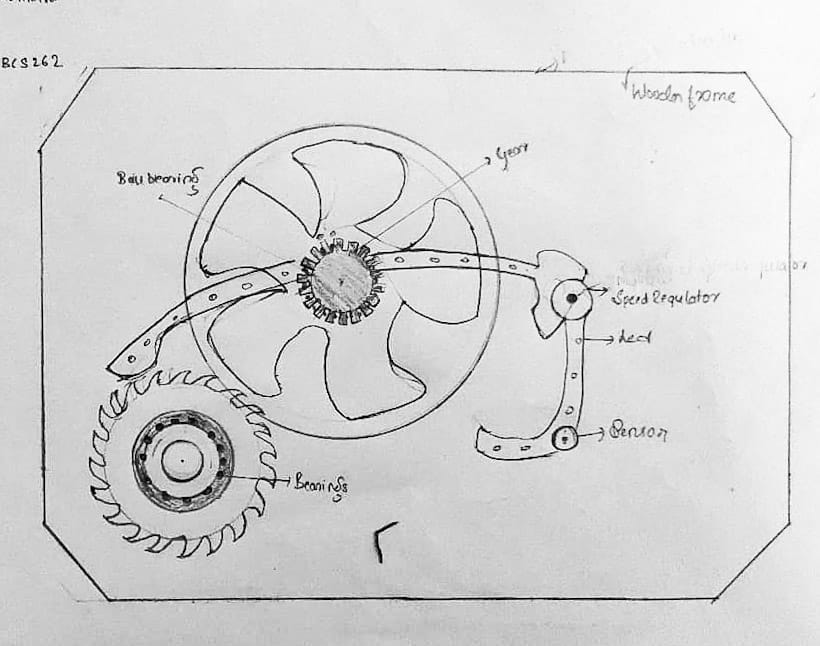 BCS262
Wooden frame
Ball bearing
Gear
Speed Regulator
Led
Sensor
Bearings